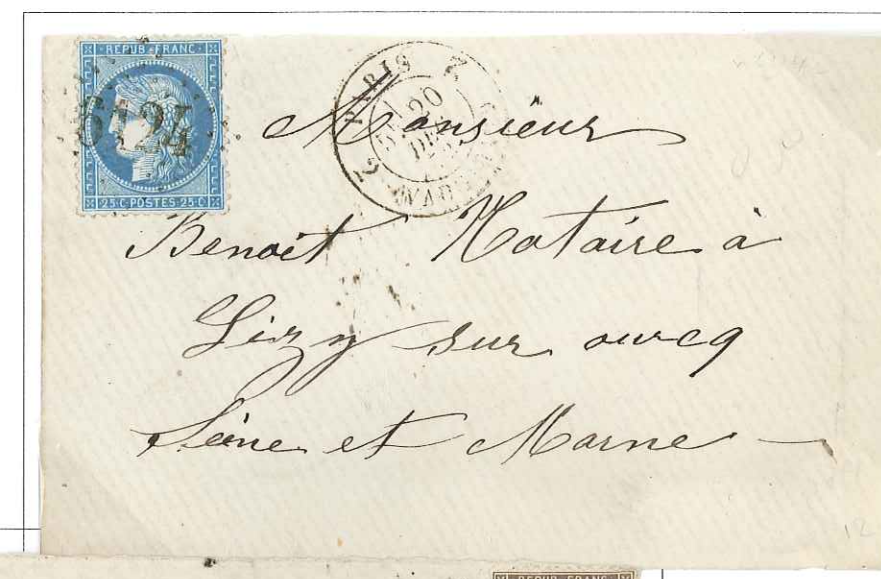 REPUB·FRANC·
6124
25·C·POSTES·25·C
PARIS
20
Monsieur
Benoît Notaire à
Lizy sur ourcq
Seine et Marne
12
REPUB·FRANC·